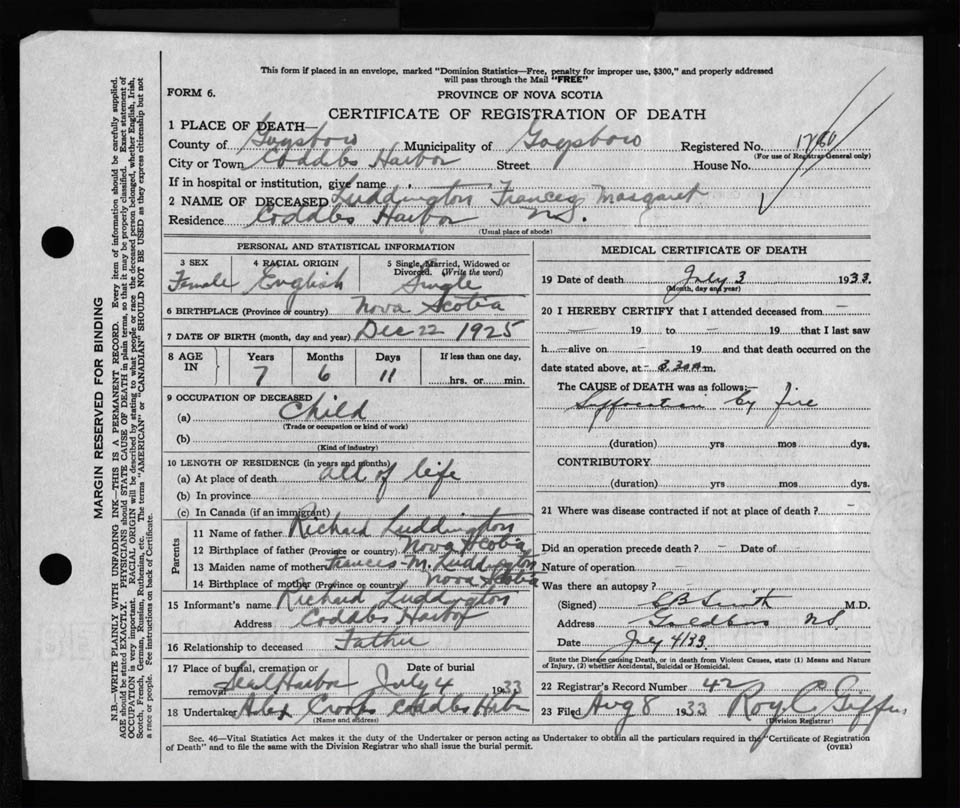 This form if placed in an envelope, marked "Dominion Statistics—Free, penalty for improper use, $300," and properly addressed
will pass through the Mail "FREE"
FORM 6.
PROVINCE OF NOVA SCOTIA
CERTIFICATE OF REGISTRATION OF DEATH
1 PLACE OF DEATH—
County of Guysboro Municipality of Guysboro Registered No.
(For use of Registrar General only)
City or Town Coddles Harbor Street House No.
If in hospital or institution, give name
2 NAME OF DECEASED Luddington Frances Margaret
Residence Coddles Harbor
(Usual place of abode)
PERSONAL AND STATISTICAL INFORMATION
3 SEX 4 RACIAL ORIGIN 5 Single, Married, Widowed or
Divorced. (Write the word)
Female English Single
6 BIRTHPLACE (Province or country) Nova Scotia
7 DATE OF BIRTH (month, day and year) Dec 22 1925
8 AGE IN Years Months Days If less than one day,
7 6 11 hrs. or min.
9 OCCUPATION OF DECEASED
(a) Child
(Trade or occupation or kind of work)
(b)
(Kind of industry)
10 LENGTH OF RESIDENCE (in years and months)
(a) At place of death all of life
(b) In province
(c) In Canada (if an immigrant)
Parents
11 Name of father Richard Luddington
12 Birthplace of father (Province or country) Nova Scotia
13 Maiden name of mother Frances M. Luddington
14 Birthplace of mother (Province or country) Nova Scotia
15 Informant's name Richard Luddington
Address Coddles Harbor
16 Relationship to deceased Father
17 Place of burial, cremation or Date of burial
removal Seal Harbor July 4 1933
18 Undertaker Alex Crooks Coddles Harbor
(Name and address)
MEDICAL CERTIFICATE OF DEATH
19 Date of death July 3 1933.
(Month, day and year)
20 I HEREBY CERTIFY that I attended deceased from
19 to 19 that I last saw
h alive on 19 and that death occurred on the
date stated above, at 3.30 a.m.
The CAUSE of DEATH was as follows:
Suffocation by fire
(duration) yrs mos dys.
CONTRIBUTORY
(duration) yrs mos dys.
21 Where was disease contracted if not at place of death?
Did an operation precede death? Date of
Nature of operation
Was there an autopsy?
(Signed) Smith M.D.
Address Goldboro NS
Date July 4/33
State the Disease causing Death, or in death from Violent Causes, state (1) Means and Nature
of Injury, (2) whether Accidental, Suicidal or Homicidal.
22 Registrar's Record Number 42
23 Filed Aug 8 1933 Roy C Giffin
(Division Registrar)
Sec. 46—Vital Statistics Act makes it the duty of the Undertaker or person acting as Undertaker to obtain all the particulars required in the "Certificate of Registration
of Death" and to file the same with the Division Registrar who shall issue the burial permit.
(OVER)
MARGIN RESERVED FOR BINDING
N.B.—WRITE PLAINLY WITH UNFADING INK—THIS IS A PERMANENT RECORD. Every item of information should be carefully supplied.
AGE should be stated EXACTLY. PHYSICIANS should STATE CAUSE OF DEATH in plain terms, so that it may be properly classified. Exact statement of
OCCUPATION is very important. RACIAL ORIGIN will be described by stating to what people or race the deceased person belonged, whether English, Irish,
Scotch, French, German, Russian, Ruthenian, etc. The terms "AMERICAN" or "CANADIAN" SHOULD NOT BE USED as they express citizenship but not
a race or people. See instructions on back of Certificate.